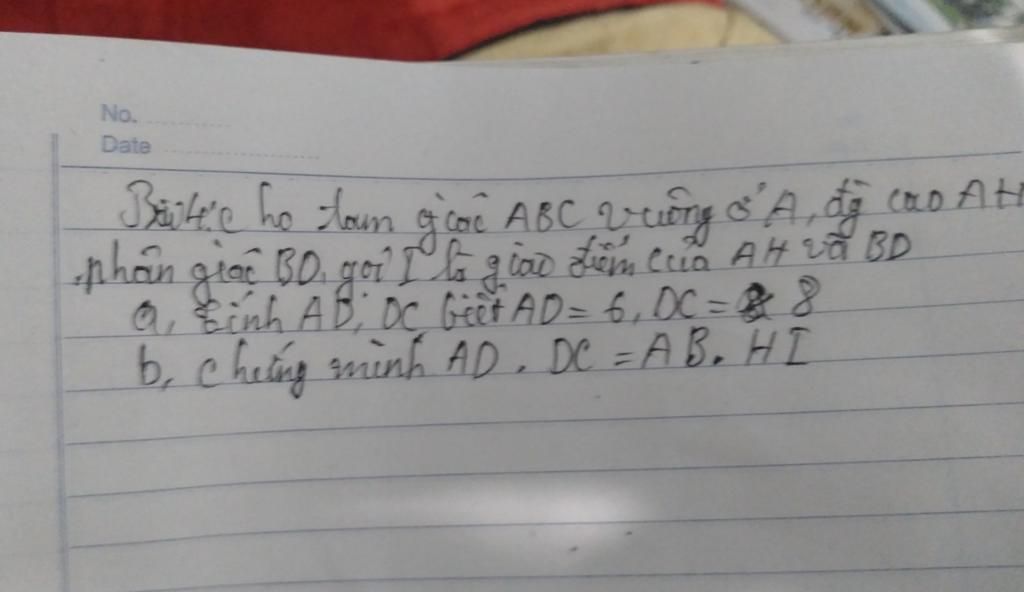 No.
Date
Bài 4: Cho tam giác ABC vuông ở A, đg cao AH
phân giác BD, gọi I là giao điểm của AH và BD
a, tính AD, DC biết AD = 6, DC = 8
b, chứng minh AD . DC = AB . HI